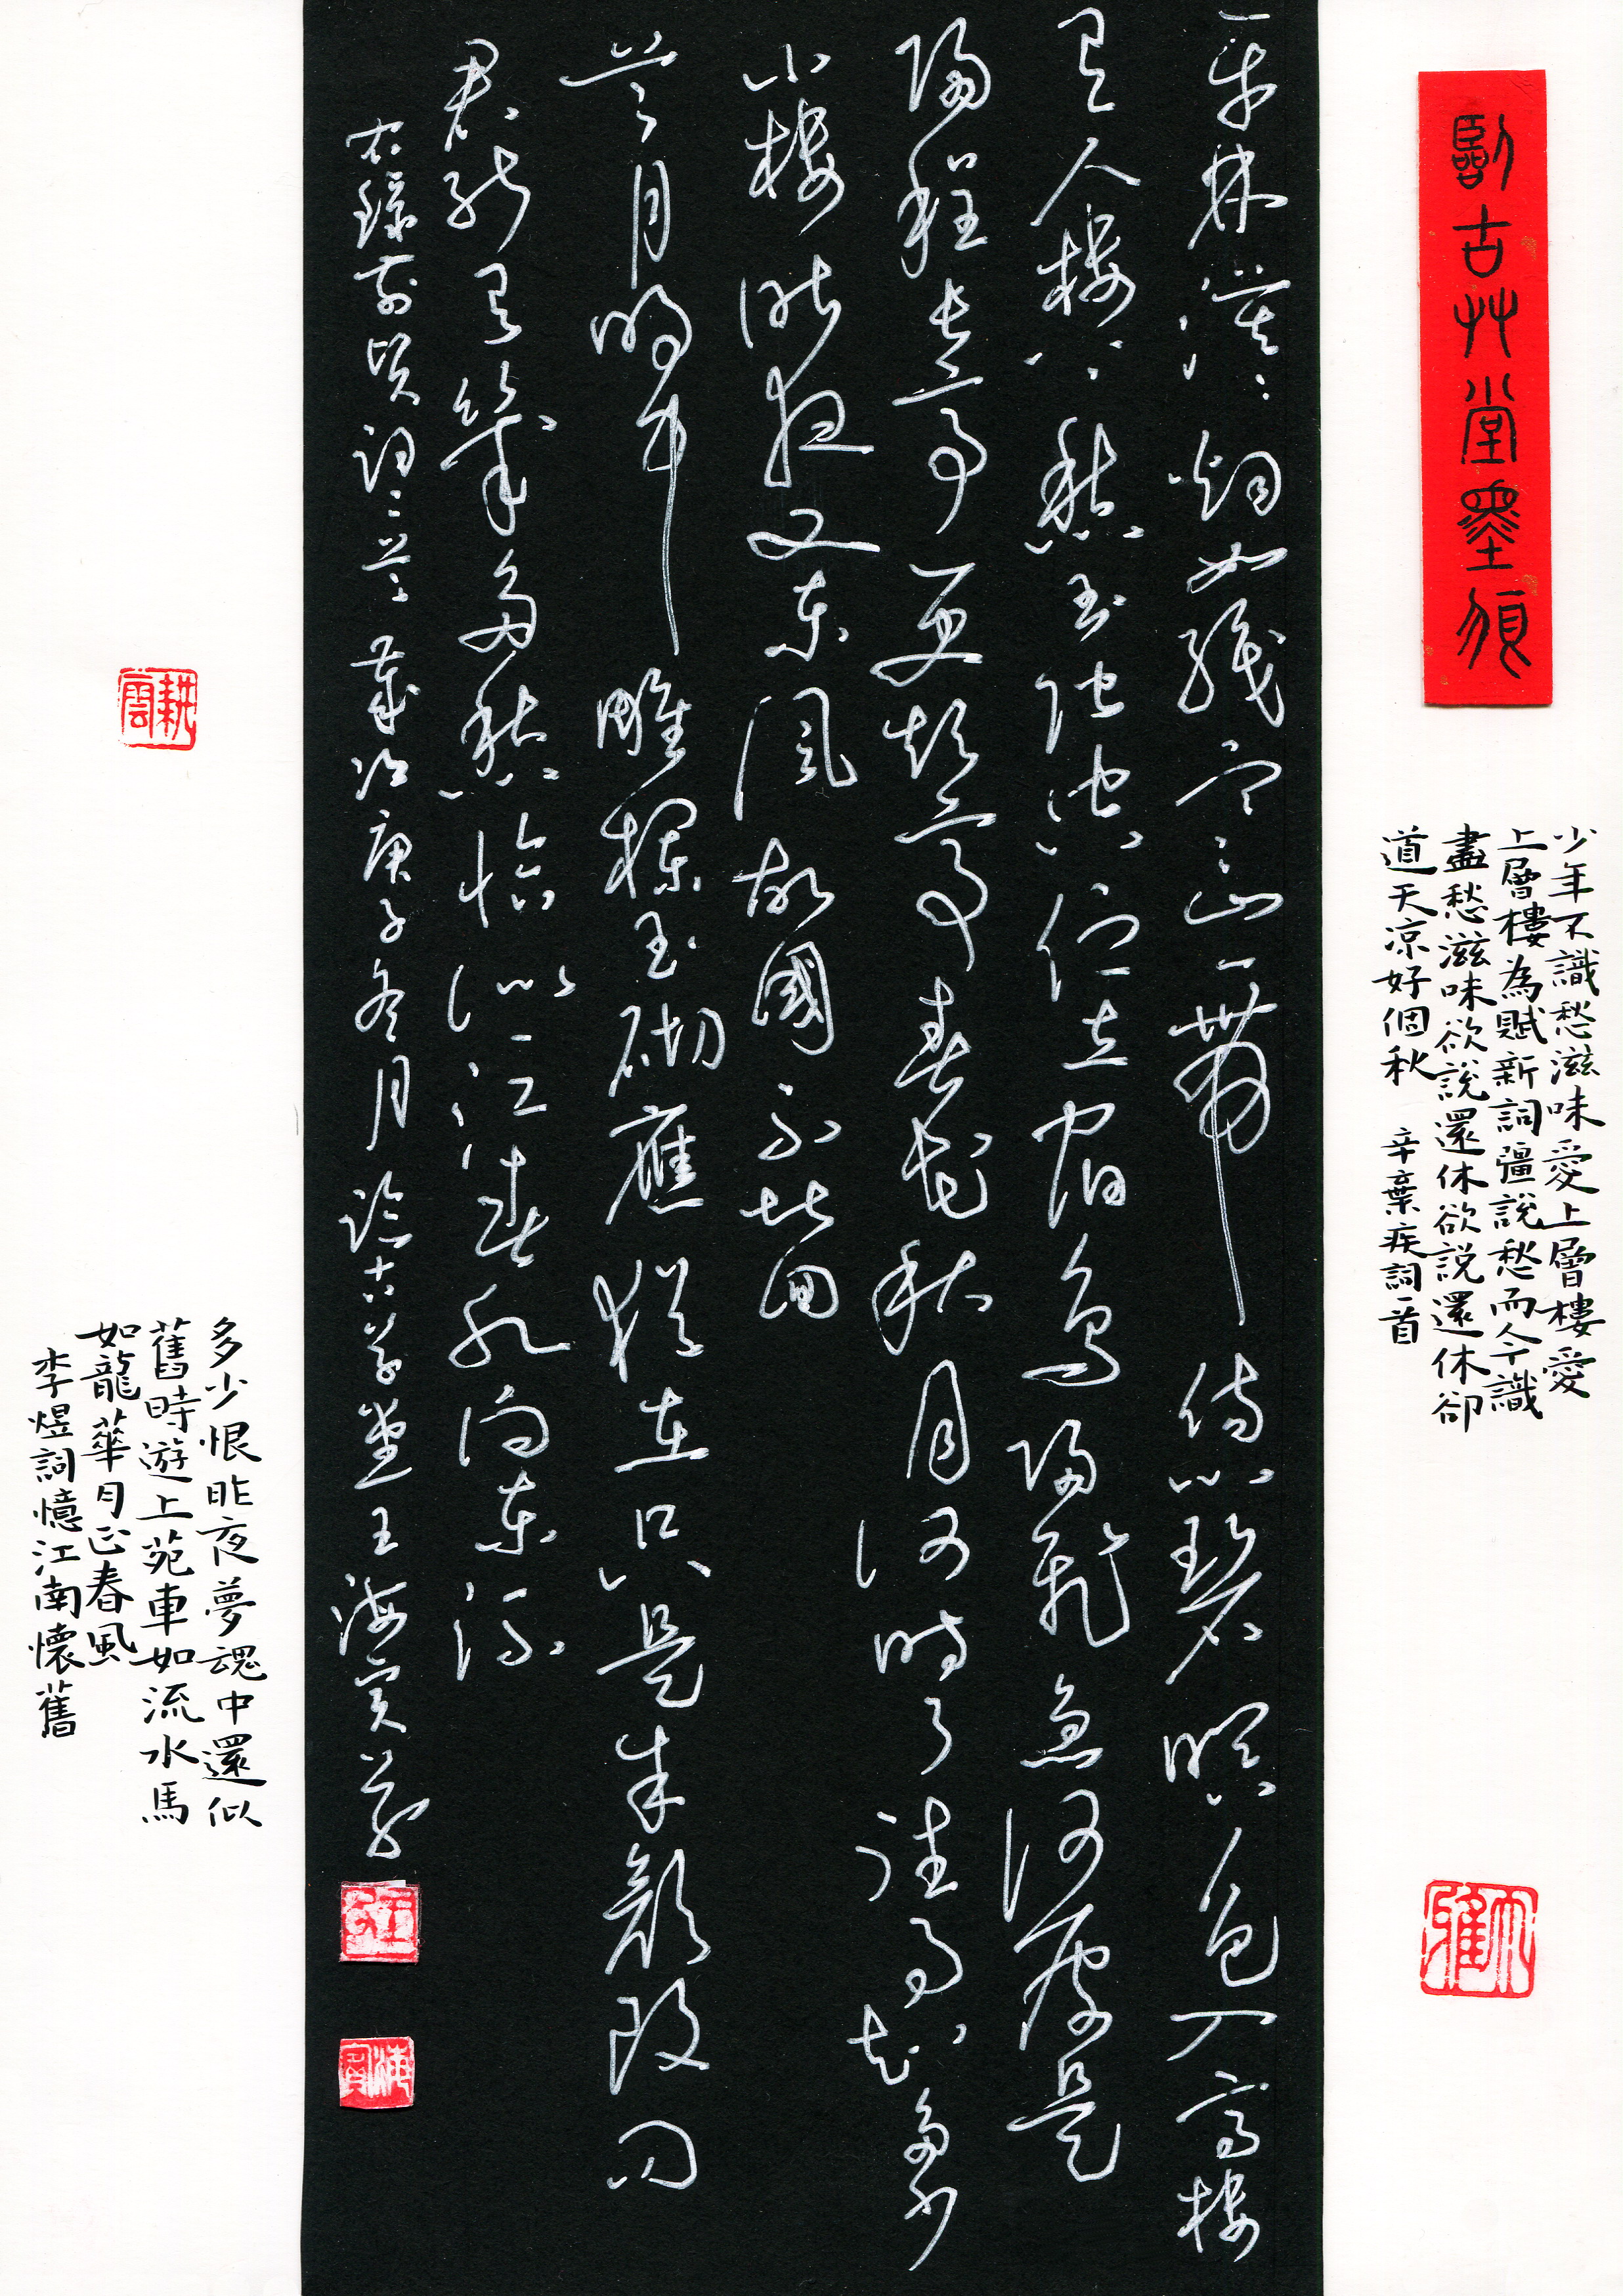 臨古艸堂墨痕
少年不識愁滋味愛上層樓愛
上層樓為賦新詞彊說愁而今識
盡愁滋味欲說還休欲説還休卻
道天凉好個秋 辛棄疾詞一首
平林漠漠烟如織寒山一帶傷心碧暝色入高樓
有人樓上愁玉階空佇立宿鳥歸飛急何處是
歸程長亭更短亭春花秋月何時了往事知多少
小樓昨夜又東風故國不堪回
首月明中雕欄玉砌應猶在只是朱顏改問
君能有幾多愁恰似江春水向東流
右錄前賢詞二首歲次庚子冬月臨古草堂王海賓草
海賓
耕雲
多少恨昨夜夢魂中還似
舊時遊上苑車如流水馬
如龍華月正春風
李煜詞憶江南懷舊